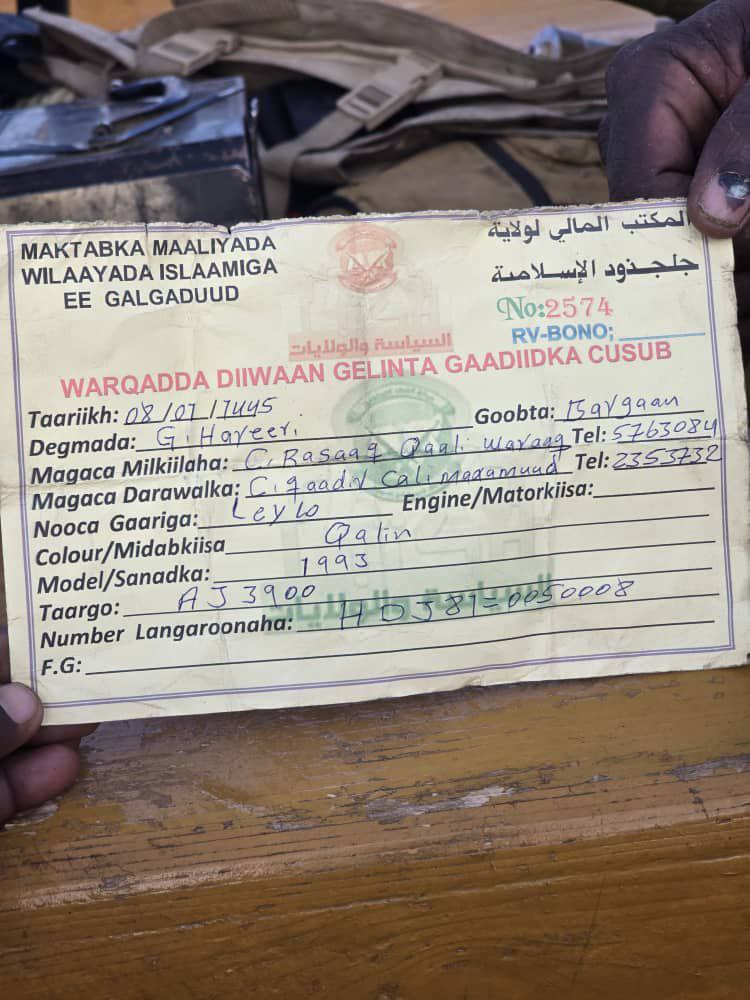 MAKTABKA MAALIYADA
WILAAYADA ISLAAMIGA
EE GALGADUUD
المكتب المالي لولاية
جلجذود الإسلامية
No:2574
RV-BONO;
السياسة والولايات
WARQADDA DIIWAAN GELINTA GAADIIDKA CUSUB
Taariikh: 08/07/1445 Goobta: Bargaan
Degmada: G. Hareeri
Magaca Milkiilaha: C. Rasaaq Qaali waraaq Tel: 5763084
Magaca Darawalka: C. qaadir Cali maxamuud Tel: 2353732
Nooca Gaariga: Leylo Engine/Matorkiisa:
Colour/Midabkiisa Qalin
Model/Sanadka: 1993
Taargo: AJ 3900
السياسة والولايات
Number Langaroonaha: HDJ81-0050008
F.G: